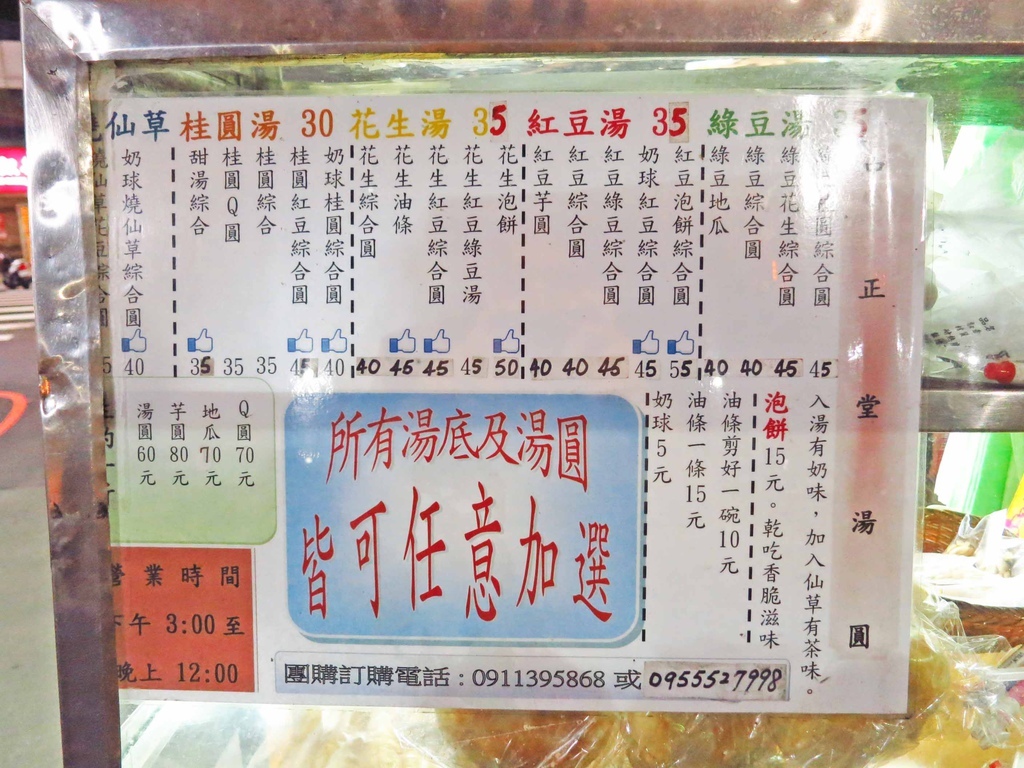 仙草 桂圓湯 30 花生湯 35 紅豆湯 35 綠豆湯 35
燒仙草花豆綜合圓
奶球燒仙草綜合圓 40
甜湯綜合 35
桂圓Q圓 35
桂圓綜合 35
桂圓紅豆綜合圓 45
奶球桂圓綜合圓 40
花生綜合圓 40
花生油條 45
花生紅豆綜合圓 45
花生紅豆綠豆湯 45
花生泡餅 50
紅豆芋圓 40
紅豆綜合圓 40
紅豆綠豆綜合圓 45
奶球紅豆綜合圓 45
紅豆泡餅綜合圓 55
綠豆地瓜 40
綠豆綜合圓 40
綠豆花生綜合圓 45
圓綜合圓 45
正堂湯圓
湯圓60元
芋圓80元
地瓜70元
Q圓70元
所有湯底及湯圓
皆可任意加選
奶球5元
油條一條15元
油條剪好一碗10元
泡餅15元。乾吃香脆滋味
入湯有奶味，加入仙草有茶味。
營業時間
下午 3:00至
晚上 12:00
團購訂購電話：0911395868 或 0955527998